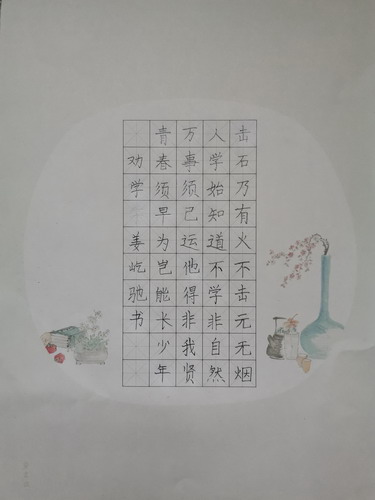 击石乃有火不击元无烟
人学始知道不学非自然
万事须己运他得非我贤
青春须早为岂能长少年
劝学 姜屹驰书